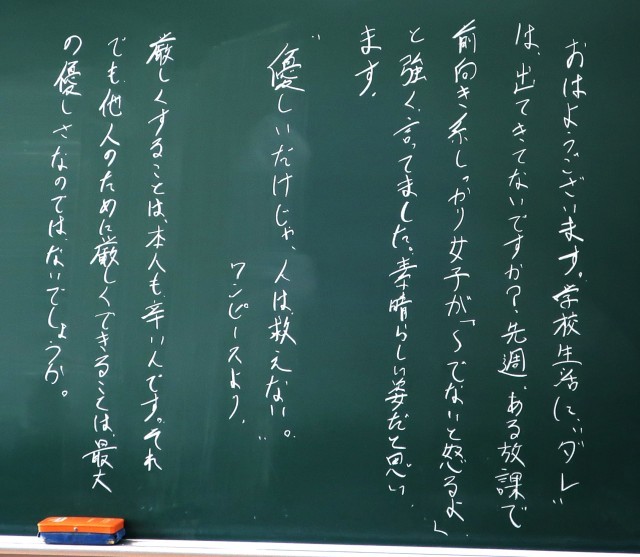 おはようございます。学校生活に、"ダレ"
は、出てきてないですか？先週、ある放課で
前向き系しっかり女子が「〜でないと怒るよ」
と強く、言ってました。素晴らしい姿だと思い
ます。
"優しいだけじゃ、人は救えない。"
ワンピースより、
厳しくすることは、本人も辛いんです。それ
でも、他人のために厳しくできることは、最大
の優しさなのでは、ないでしょうか。